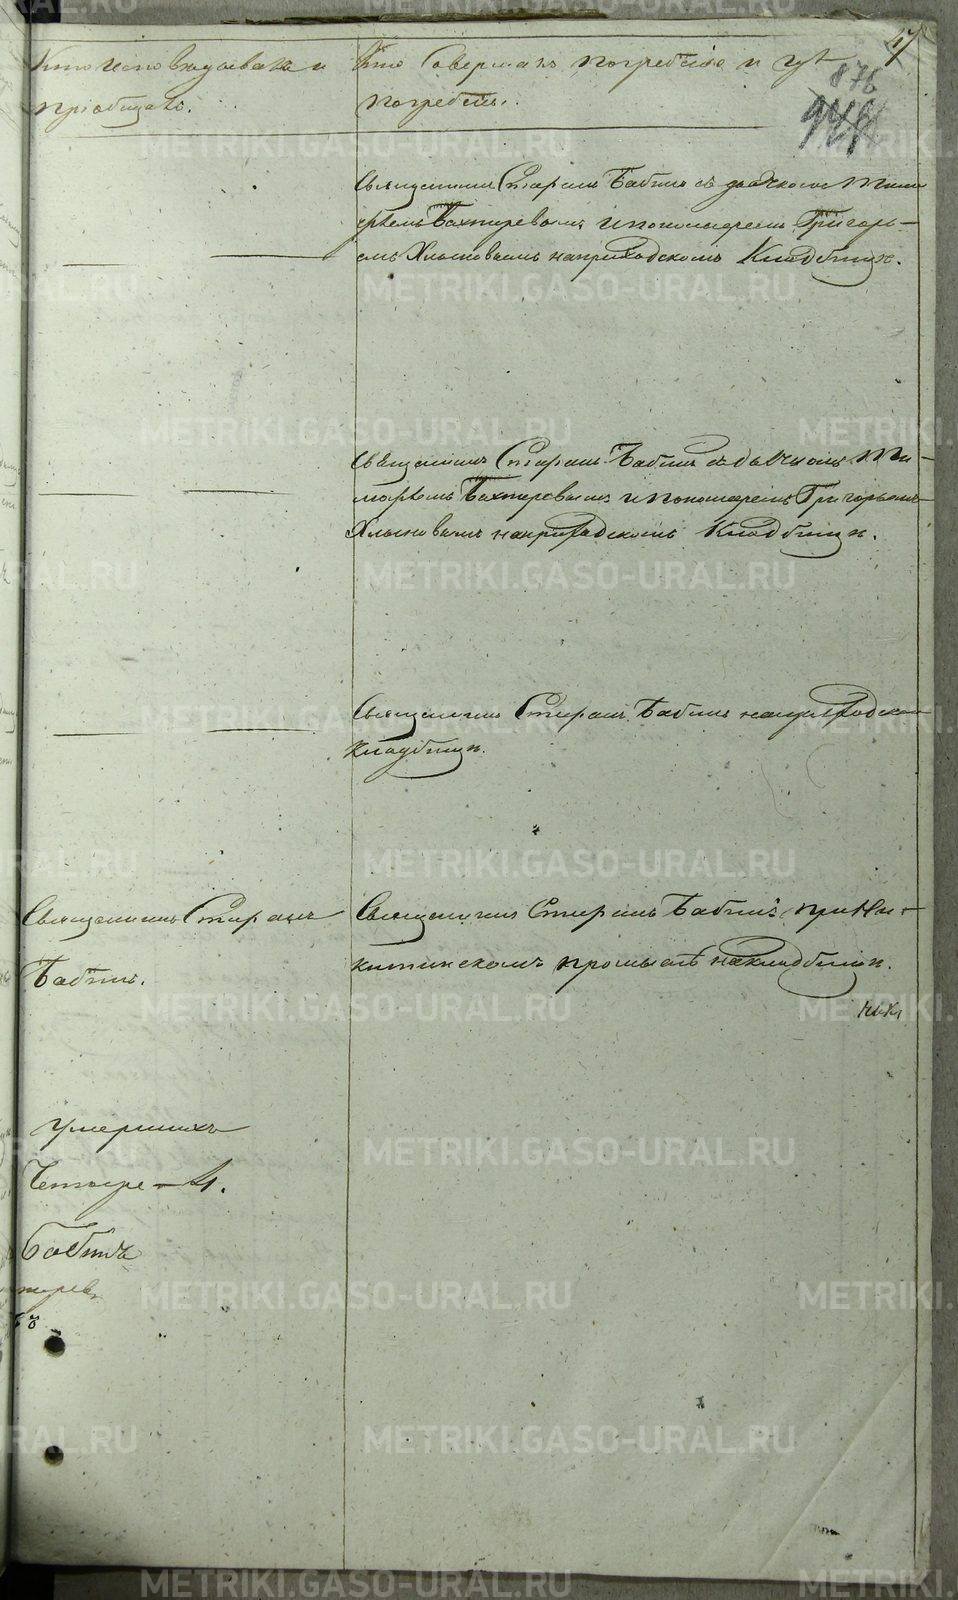 47
876
Кто исповѣдывалъ и
пріобщалъ.
Кто совершалъ погребеніе и гдѣ
погребены.
Священникъ Стефанъ Бабинъ съ дьячкомъ Тимо
фѣемъ Бахтеревымъ и пономаремъ Григорь-
емъ Хлыновымъ на приходскомъ Кладбищѣ.
Священникъ Стефанъ Бабинъ съ дьячкомъ Ти-
мофѣемъ Бахтеревымъ и пономаремъ Григорьемъ
Хлыновымъ на приходскомъ Кладбищѣ.
Священникъ Стефанъ Бабинъ на приходском
Кладбищѣ.
Священникъ Стефанъ
Бабинъ.
Священникъ Стефанъ Бабинъ при Ни-
китинскомъ промыслѣ на кладбищѣ.
умершихъ
Четыре - 4.
Бабинъ
терев
METRIKI.GASO-URAL.RU